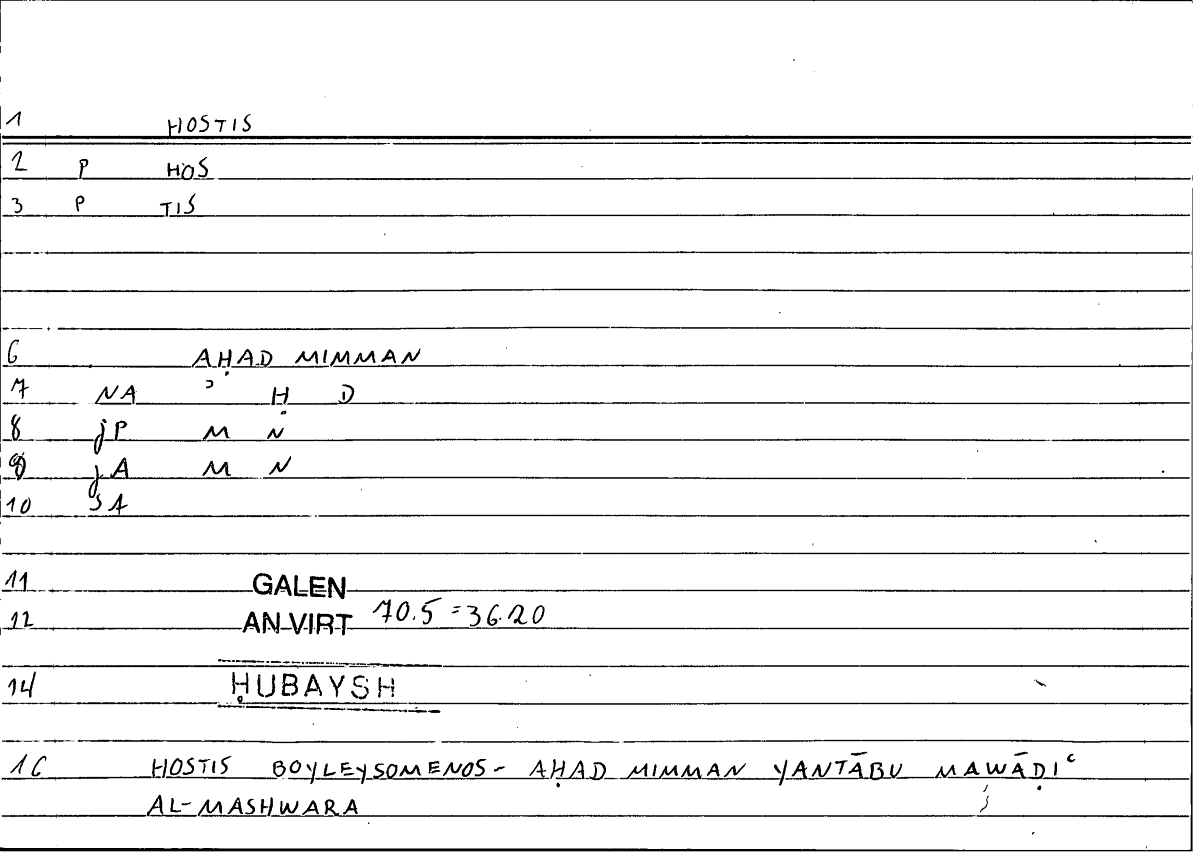 1 HOSTIS
2 P HOS
3 P TIS
6 AḤAD MIMMAN
7 NA ʾ Ḥ D
8 jP M N
9 jA M N
10 SA
11 GALEN
12 AN VIRT 70.5 = 36.20
14 ḤUBAYSH
16 HOSTIS BOYLEYSOMENOS - AḤAD MIMMAN YANTĀBU MAWĀḌIʿ
AL-MASHWARA